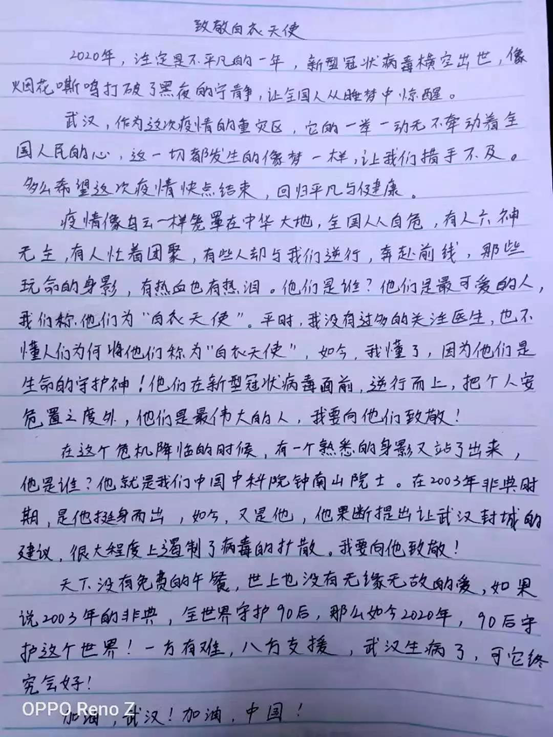 致敬白衣天使
2020年,注定是不平凡的一年,新型冠状病毒横空出世,像
烟花嘶鸣打破了黑夜的宁静,让全国人从睡梦中惊醒。
武汉,作为这次疫情的重灾区,它的一举一动无不牵动着全
国人民的心,这一切都发生的像梦一样,让我们措手不及。
多么希望这次疫情快点结束,回归平凡与健康。
疫情像乌云一样笼罩在中华大地,全国人人自危,有人六神
无主,有人忙着团聚,有些人却与我们逆行,奔赴前线,那些
玩命的身影,有热血也有热泪。他们是谁?他们是最可爱的人,
我们称他们为“白衣天使”。平时,我没有过多的关注医生,也不
懂人们为何将他们称为“白衣天使”,如今,我懂了,因为他们是
生命的守护神!他们在新型冠状病毒面前,逆行而上,把个人安
危置之度外,他们是最伟大的人,我要向他们致敬!
在这个危机降临的时候,有一个熟悉的身影又站了出来,
他是谁?他就是我们中国中科院钟南山院士。在2003年非典时
期,是他挺身而出,如今,又是他,他果断提出让武汉封城的
建议,很大程度上遏制了病毒的扩散。我要向他致敬!
天下没有免费的午餐,世上也没有无缘无故的爱,如果
说2003年的非典,全世界守护90后,那么如今2020年,90后守
护这个世界!一方有难,八方支援,武汉生病了,可它终
究会好!
加油,武汉!加油,中国!
OPPO Reno Z